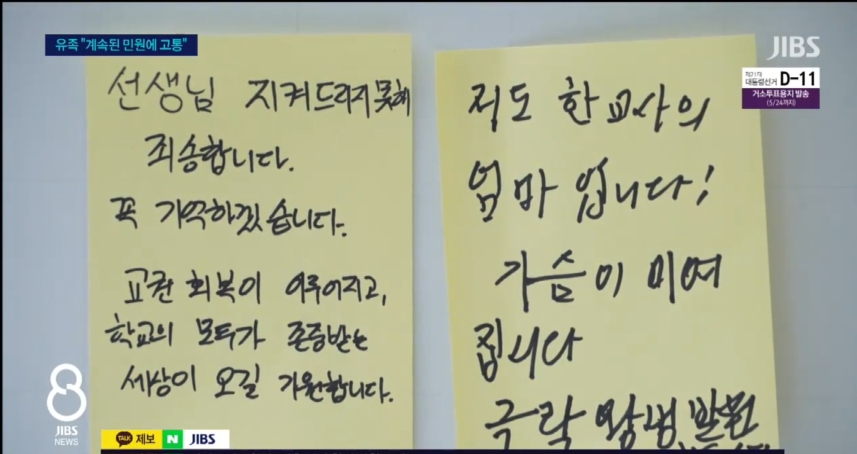 유족 "계속된 민원에 고통"
JIBS
제21대
대통령선거
D-11
거소투표용지 발송
(5/24까지)
선생님 지켜드리지 못해
죄송합니다.
꼭 기억하겠습니다.
교권 회복이 이루어지고,
학교의 모두가 존중받는
세상이 오길 기원합니다.
저도 한 교사의
엄마 입니다!
가슴이 미여
집니다
극락왕생 발원
8
JIBS
NEWS
TALK 제보 N JIBS